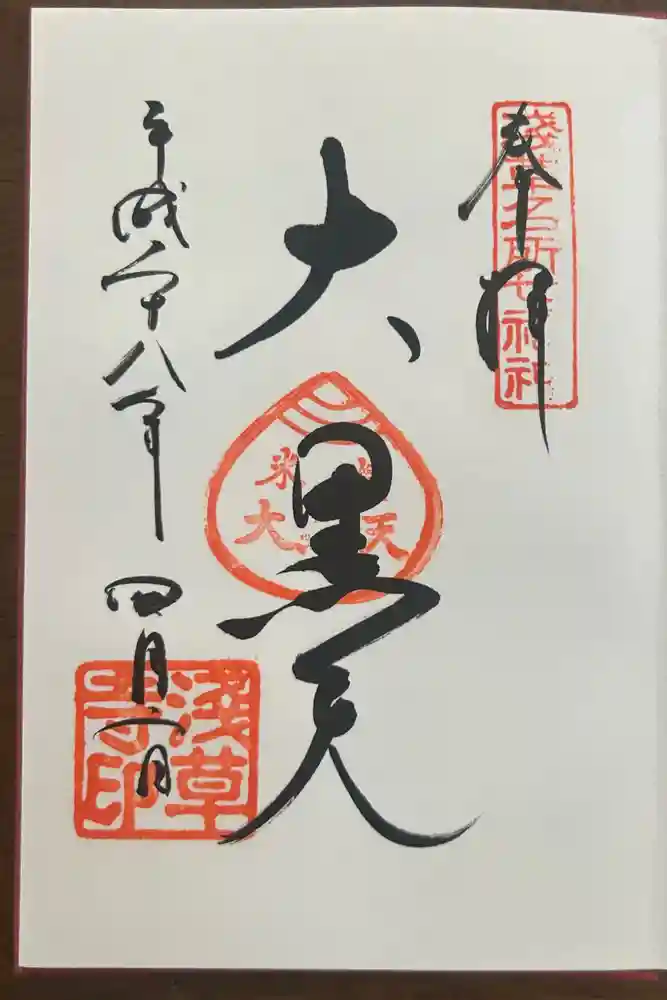 奉拝
浅草名所七福神
大黒天
米 大 天
平成二十八年四月二日
浅草
寺印